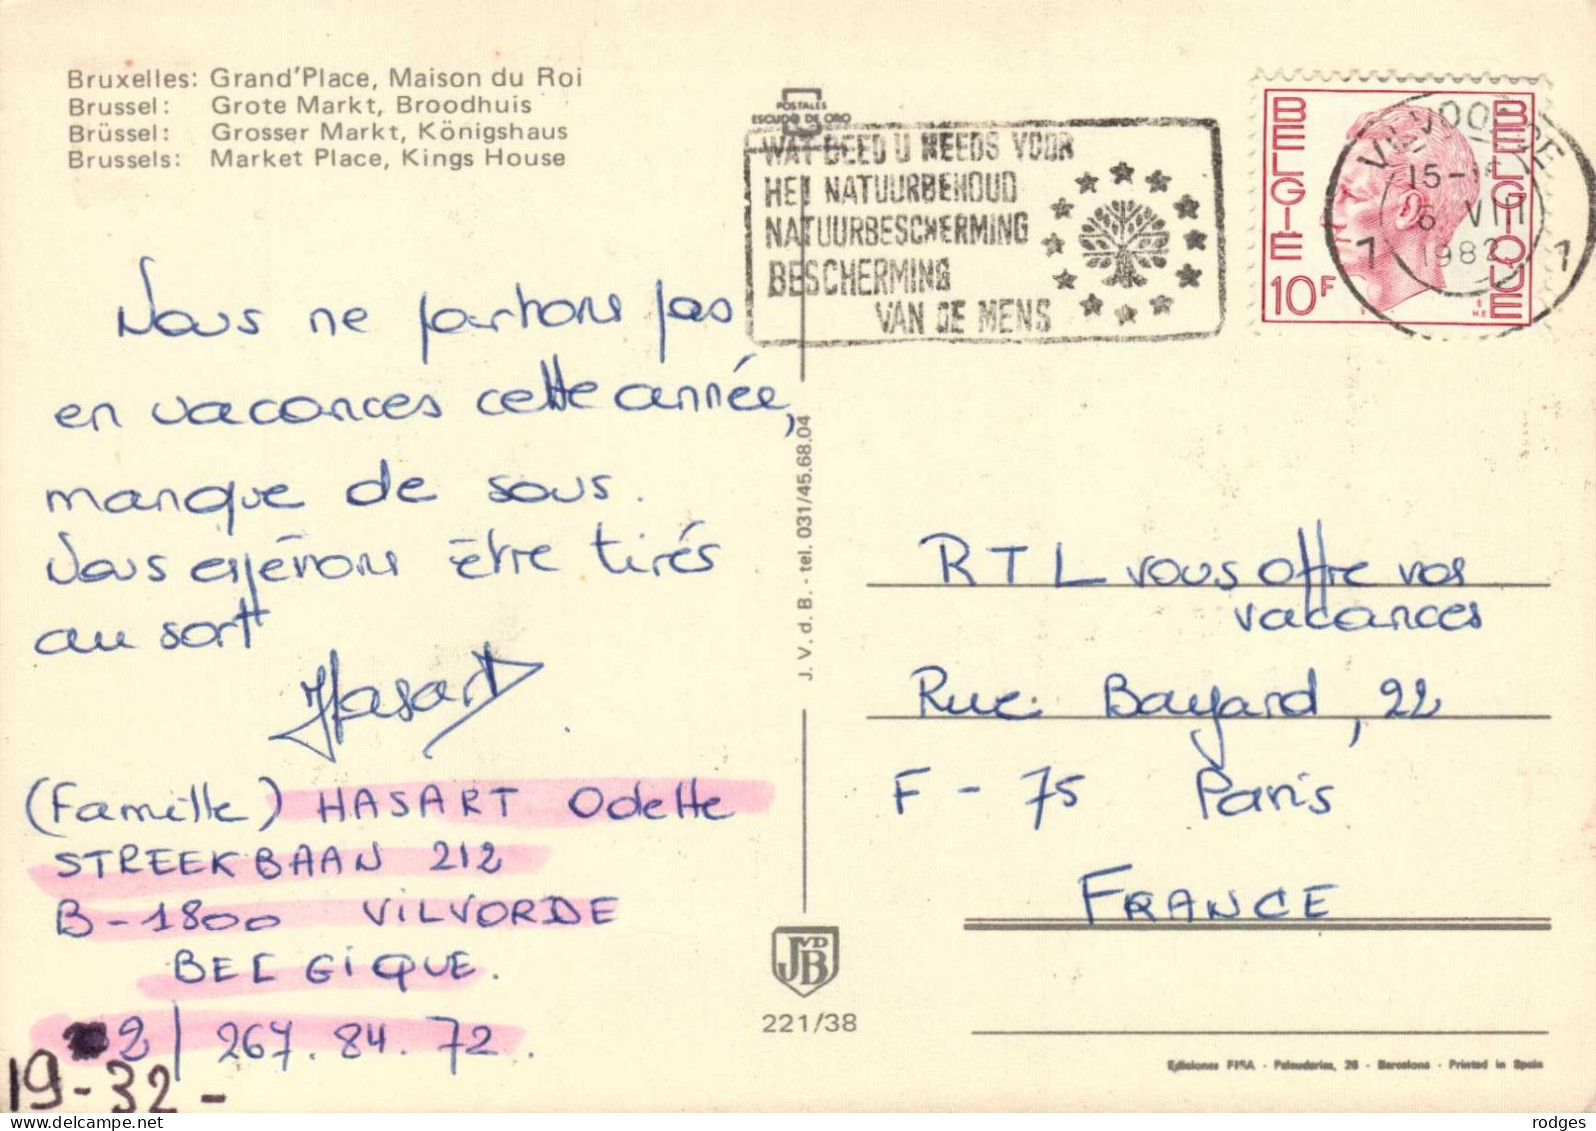 Bruxelles: Grand'Place, Maison du Roi
Brussel: Grote Markt, Broodhuis
Brüssel: Grosser Markt, Königshaus
Brussels: Market Place, Kings House
POSTALES
ESCUDO DE ORO
WAT DEED U REEDS VOOR
HET NATUURBEHOUD
NATUURBESCHERMING
BESCHERMING
VAN DE MENS
BELGIE
BELGIQUE
10F
VILVOORDE
15-
6 VIII
1982
1 1
Nous ne partons pas
en vacances cette année,
manque de sous.
Nous espérons être tirés
au sort
Hasart
(Famille) HASART Odette
STREEKBAAN 212
B-1800 VILVORDE
BELGIQUE.
2/267.84.72.
19-32-
J. V. d. B. - tel. 031/45.68.04
JVDB
221/38
RTL vous offre vos
vacances
Rue Bayard, 22
F-75 Paris
FRANCE
Ediciones FISA - Palaudarias, 26 - Barcelona - Printed in Spain
rodges